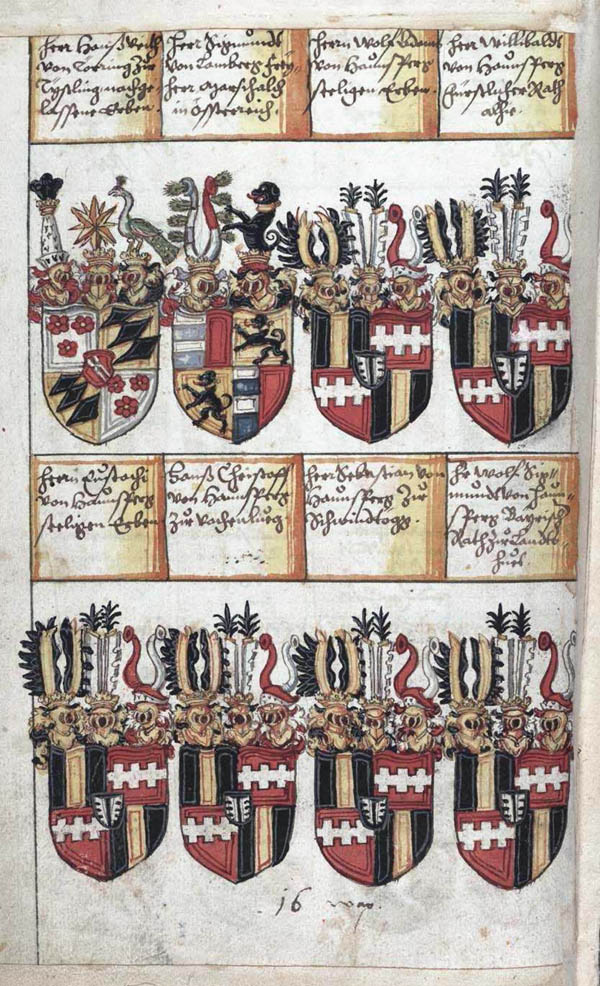 Herr Hannß Veith
von Toͤrring zur
Tyßling nachge
lassene Erben.
Herr Sigmundt
von Lamberg frey
herr Marschalch
in Össterreich.
Herrn Wolf Adams
von Haunsperg
seeligen Erben.
Herr Willibaldt
von Haunsperg
fürstlicher Rath
Herrn Eustachi
von Haunsperg
seeligen Erben
Hannß Christoff
von Haunsperg
zur Vachenlueg
Herr Sebastian von
Haunsperg zur
Schwindtegg.
Hr Wolf Sig-
mundt von Haun-
sperg Bayrisch
Rath zur Landts
huet
16 wap.